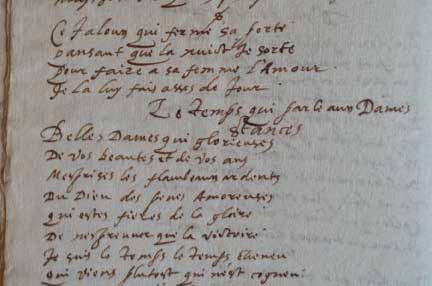 Ce Jalouxs qui ferme sa porte
pansant que la nuict Je sorte
Pour faire a sa femme l'Amour
Je la luy fais asses de Jour
Le temps qui parle aux Dames
Stances
Belles Dames qui glorieuses
De vos beautes et de vos ans
Mesprises les flambeaux ardents
Du Dieu des penes Amoureuses
Qui estes fieres de la gloire
De n'espreuuer que la victoire
Je suis le temps le temps
Qui viens plustost qui n'est cogneu